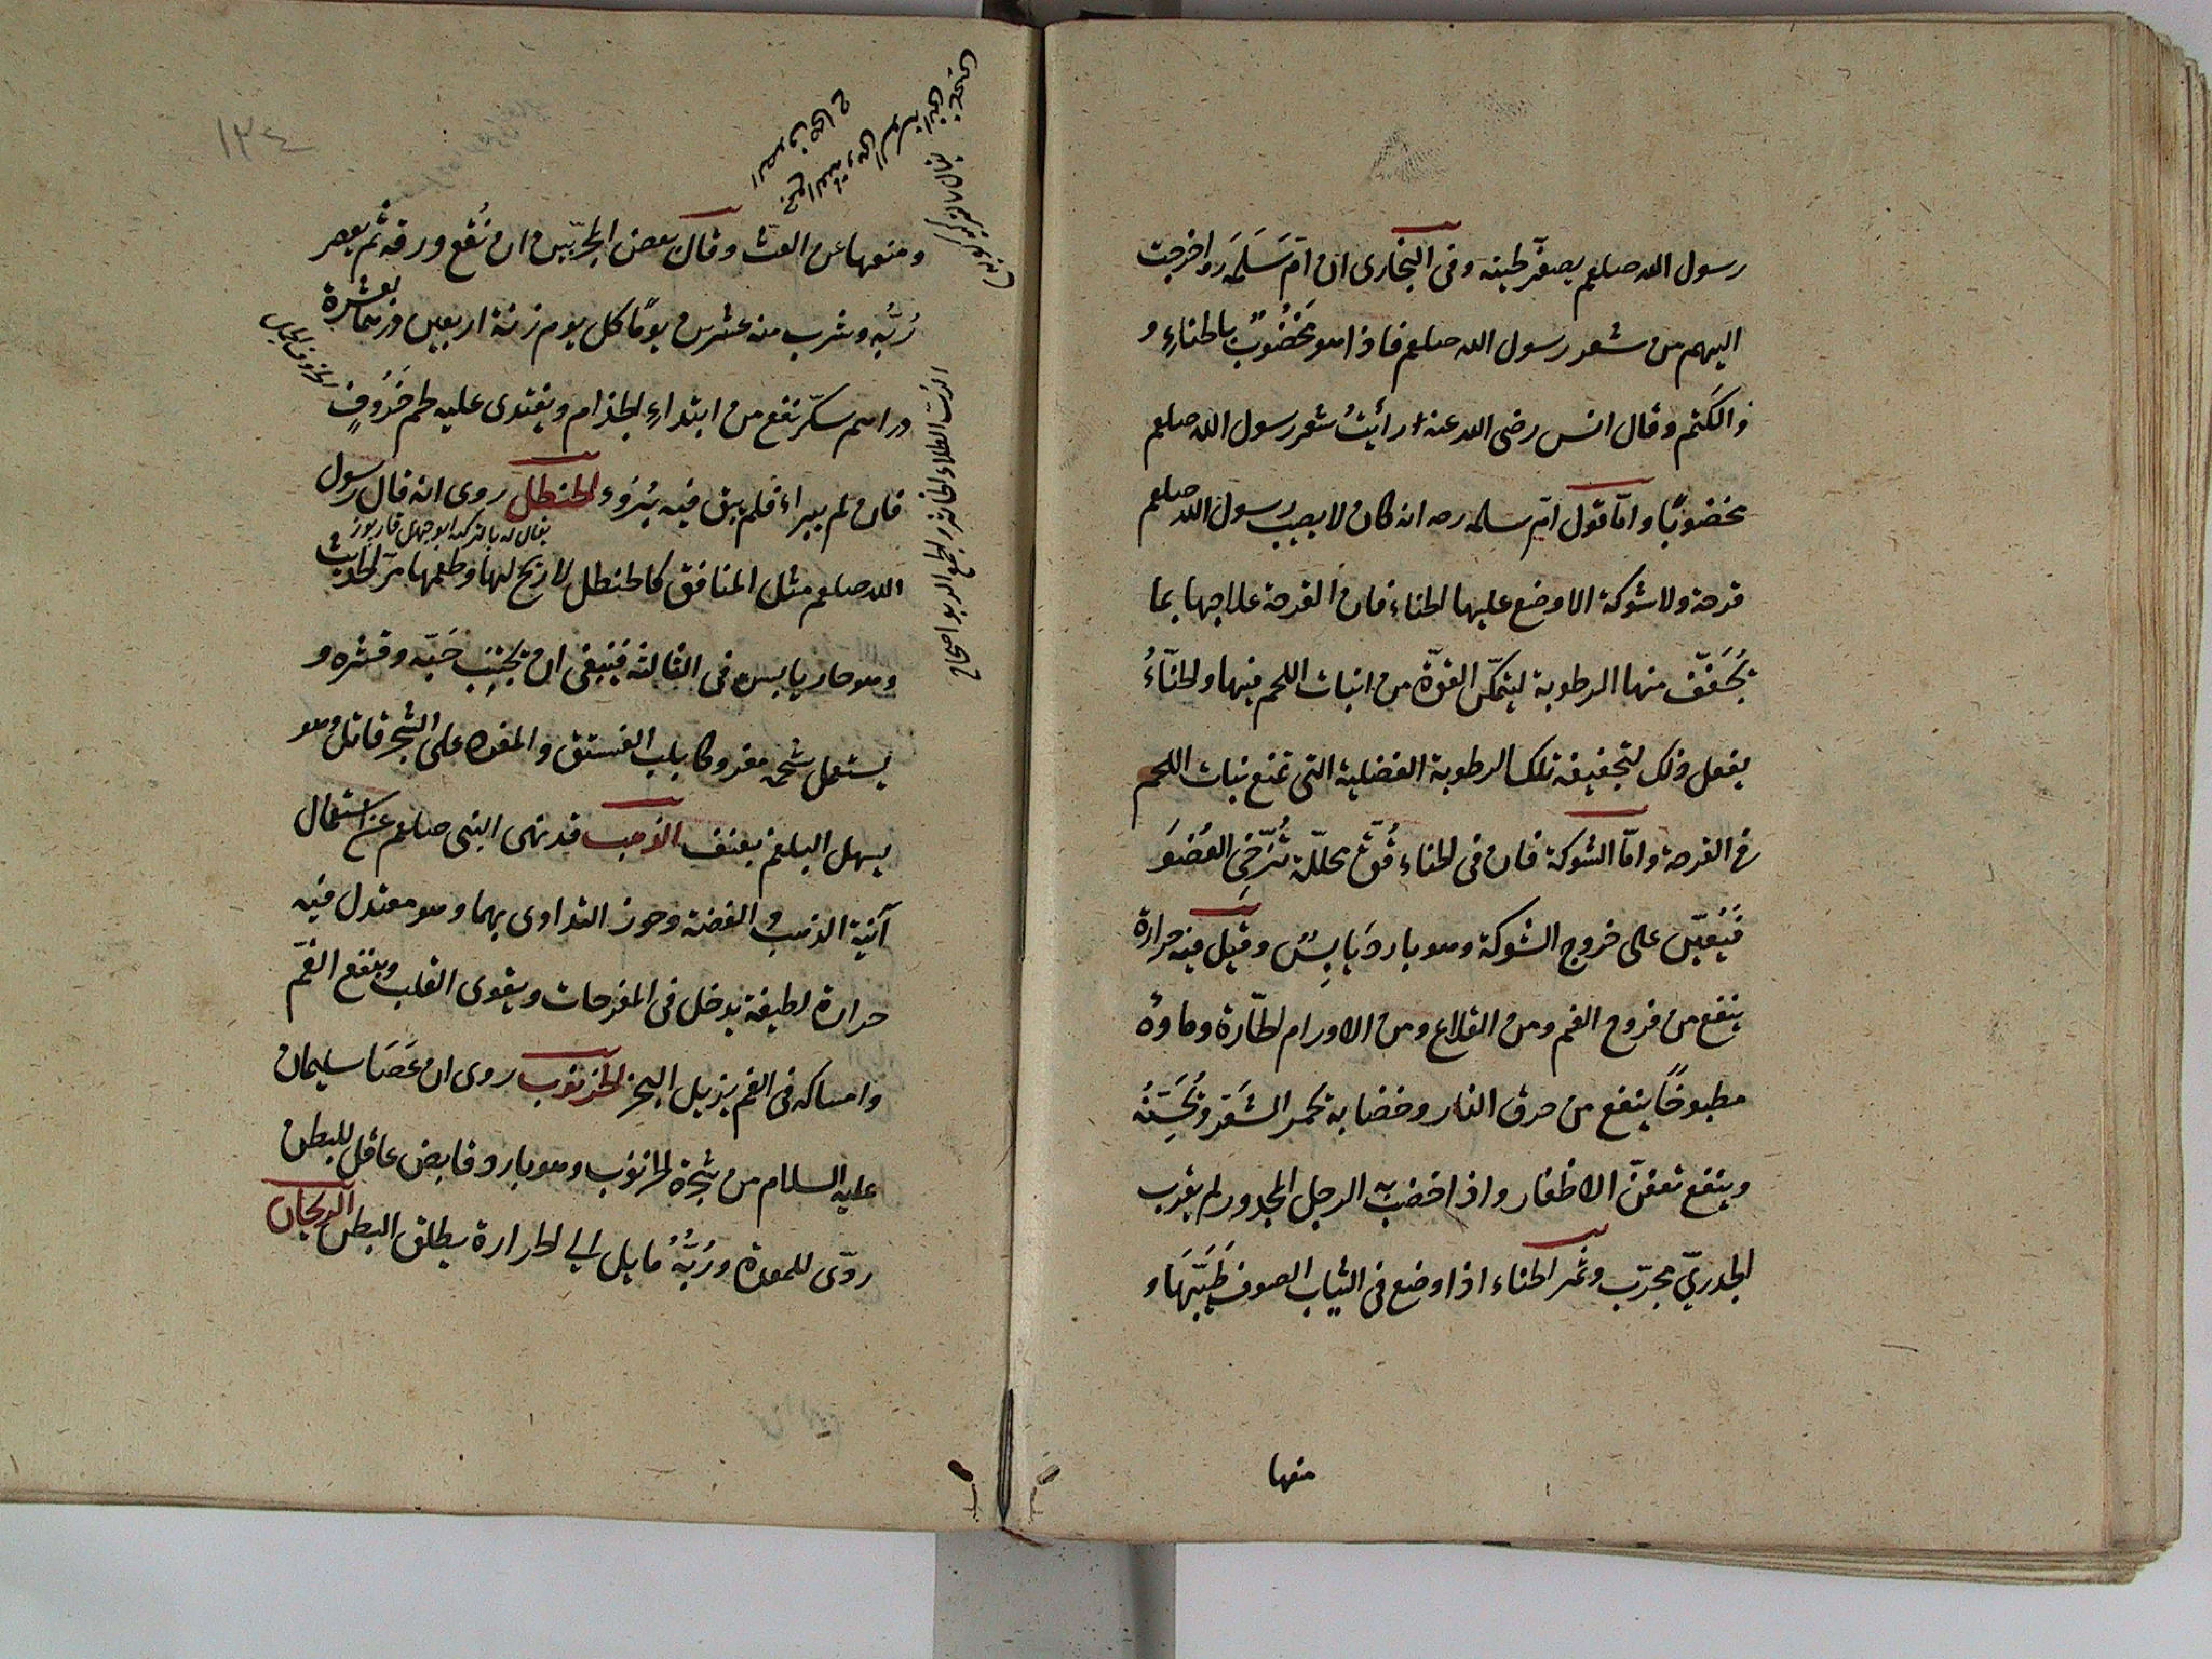 رسول الله صلعم يصفّر لحيته وفى البخارى ان امّ سَلَمَه رر اخرجت
اليهم من شعر رسول الله صلعم فاذا هو مَخْضُوبٌ بالحناءِ و
والكَتم وقال انس رضى الله عنه رأيتُ شعر رسول الله صلعم
مخضوبًا وامّا قول امّ سلمه رر انه كان لا يصيب رسول الله صلعم
قرحة ولا شوكة الا وضع عليها الحناء فان القرحة علاجها بما
يُجَفّف منها الرطوبة ليتمكّن القوّة من انبات اللحم فيها والحنّاءُ
يفعل ذلك لتجفيفه تلك الرطوبة الفضلية التى تمنع نبات اللحم
فى القرحة وامّا الشوكة فان فى الحناء قُوّة محلّلة تُرَخّى العُضْوَ
فَيُعَيّن على خروج الشوكة وهو بارد يَابِسٌ وقيل فيه حرارة
ينفع من قروح الفم ومن القلاع ومن الاورام الحارّة وماوهُ
مطبوخًا ينفع من حرق النار وخضابه يحمر الشَعَر ويُحَسِّنُهُ
وينفع تعفنّ الاظفار واذا خضبَ به الرجل المجدور لم يقرب
الجدريّ مجرّب وثمر الحناء اذا وضع فى الثياب الصوف طَيَّبَهَا و
منها
١٣٤
ومنعها عن العثّ وقال بعض المجرّبين ان نُقع ورقه ثم يعصر
رُبّه وشرب منه عشرين يومًا كل يوم زنة اربعين درهمًا بعشرة
دراهم سكّر نفع من ابتداءِ الجذام ويغتدى عليه لحم خَرُوفٍ
فان لم يبراء فلم يبق فيه بُرْوء الحنظل روى انه قال رسول
يقال له بالتركيه ابوجهل قاربوز
الله صلعم مثل المنافق كالحنظل لا ريح لها وطعمها مرّ الحديث
وهو حار يابس فى الثالثه فينبغى ان يجتنب حَبّه وقشره و
يستعمل شحمه مفروكا بلب الفستق والمفرده على الشجر قاتل وهو
يسهل البلغم بعنف الذهب قد نهى النبى صلعم عن استعمال
آنية الذهب والفضة وجوز التداوى بهما وهو معتدل فيه
حرارة لطيفة يدخل فى المفرحات ويقوى القلب وينفع الغمّ
وامساكه فى الفم يزيل البخر الخرنوب روى ان عَصَا سليمان
عليه السلام من شجرة الخرنوب وهو بارد قابض عاقل للبطن
ردّى للمعدة ورُبّهُ مايل الى الحرارة يطلق البطن الريحان